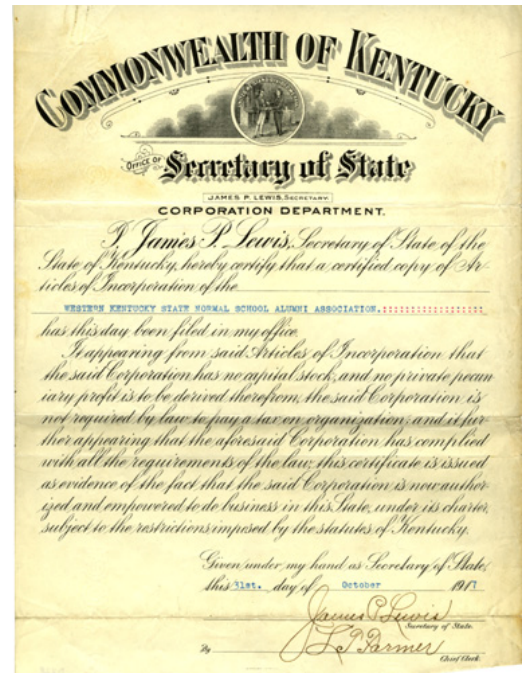 COMMONWEALTH OF KENTUCKY
OFFICE OF Secretary of State
JAMES P. LEWIS, SECRETARY.
CORPORATION DEPARTMENT.
I, James P. Lewis, Secretary of State of the
State of Kentucky, hereby certify that a certified copy of Ar-
ticles of Incorporation of the
WESTERN KENTUCKY STATE NORMAL SCHOOL ALUMNI ASSOCIATION,::::::::::::::::::
has this day been filed in my office.
It appearing from said Articles of Incorporation that
the said Corporation has no capital stock, and no private pecun
iary profit is to be derived therefrom, the said Corporation is
not required by law to pay a tax on organization; and it fur
ther appearing that the aforesaid Corporation has complied
with all the requirements of the law, this certificate is issued
as evidence of the fact that the said Corporation is now author
ized and empowered to do business in this State, under its charter,
subject to the restrictions imposed by the statutes of Kentucky.
Given under my hand as Secretary of State,
this 31st. day of October 1917
James P. Lewis
Secretary of State.
By L P Farmer
Chief Clerk.